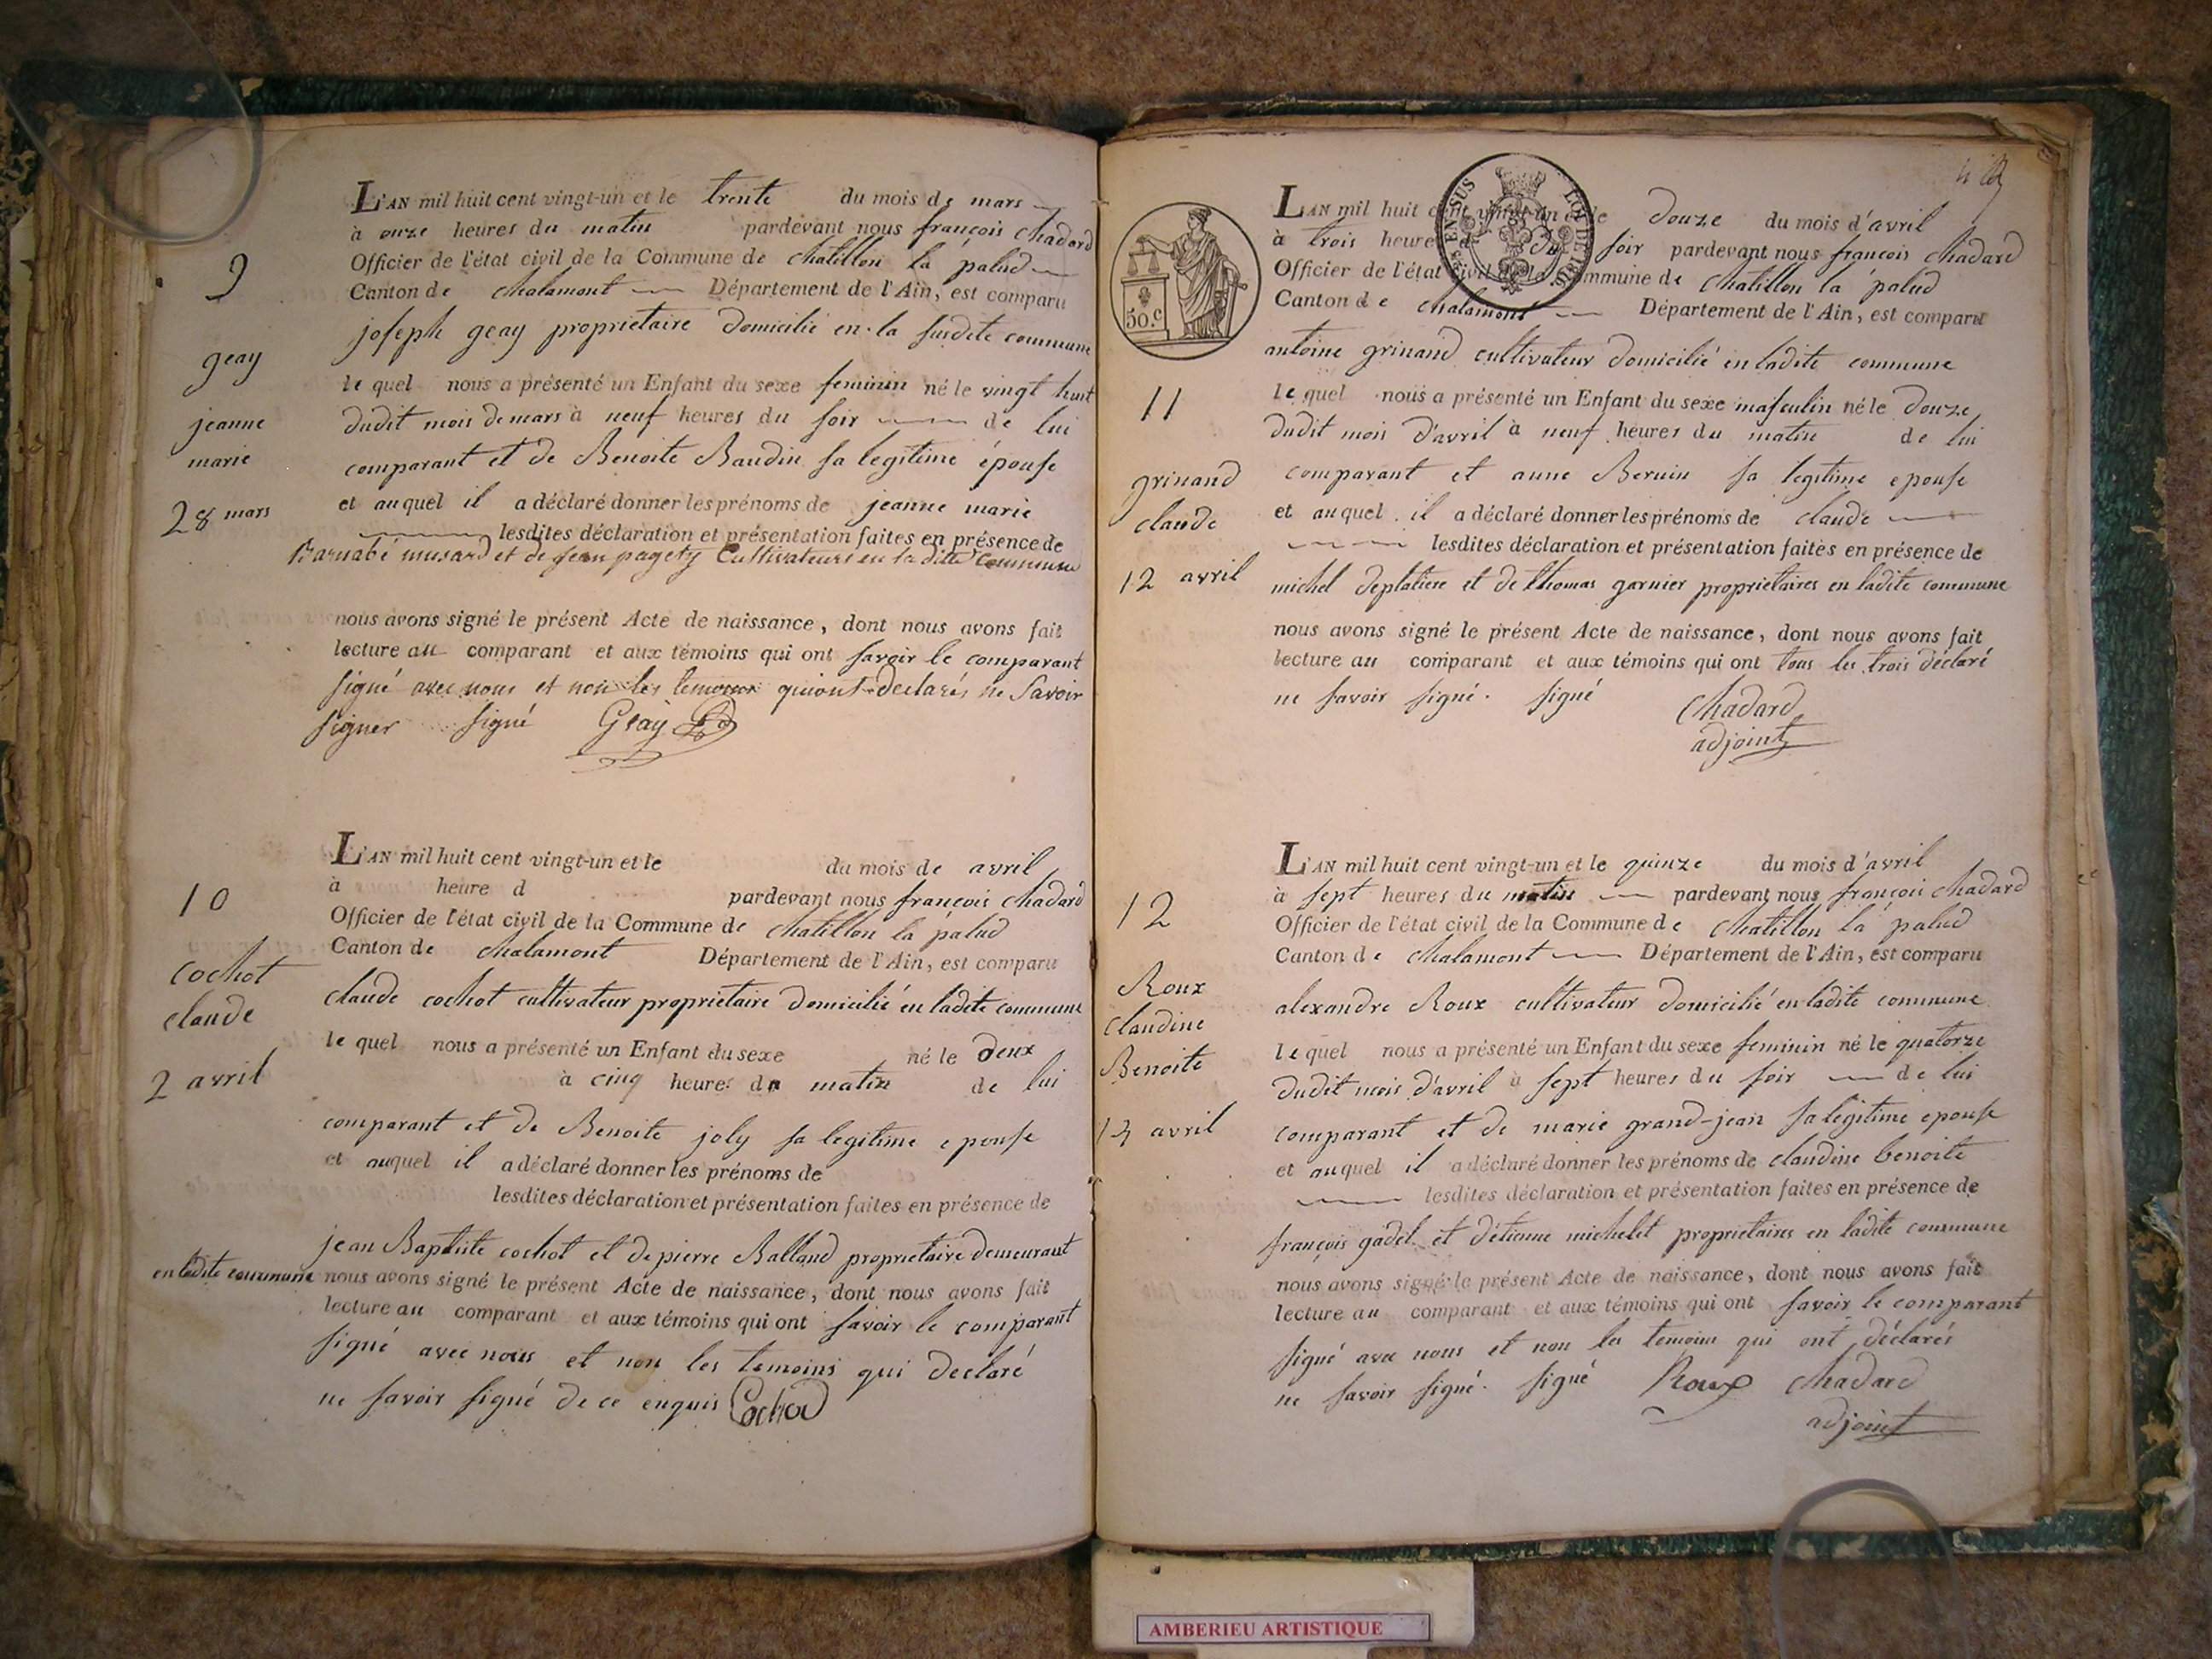 9
geay
jeanne
marie
28 mars
L'AN mil huit cent vingt-un et le trente du mois de mars
à onze heures du matin pardevant nous françois Chadard
Officier de l'état civil de la Commune de chatillon la palud
Canton de chalamont Département de l'Ain, est comparu
joseph geay proprietaire domicilié en la susdite commune
le quel nous a présenté un Enfant du sexe feminin né le vingt huit
dudit mois de mars à neuf heures du soir de lui
comparant et de Benoite Baudin sa legitime épouse
et auquel il a déclaré donner les prénoms de jeanne marie
lesdites déclaration et présentation faites en présence de
Barnabé musard et de jean pagety Cultivateurs en la ditte Commune
nous avons signé le présent Acte de naissance, dont nous avons fait
lecture au comparant et aux témoins qui ont savoir le comparant
signé avec nous et non les temoins qui ont declarés ne Savoir
signer signé Geay
10
cochot
claude
2 avril
L'AN mil huit cent vingt-un et le du mois de avril
à heure d pardevant nous françois chadard
Officier de l'état civil de la Commune de chatillon la palud
Canton de chalamont Département de l'Ain, est comparu
claude cochot cultivateur proprietaire domicilié en ladite commune
le quel nous a présenté un Enfant du sexe né le deux
à cinq heures du matin de lui
comparant et de Benoite joly sa legitime epouse
et auquel il a déclaré donner les prénoms de
lesdites déclaration et présentation faites en présence de
jean Baptiste cochot et de pierre Balland proprietaire demeurant
en ladite commune nous avons signé le présent Acte de naissance, dont nous avons fait
lecture au comparant et aux témoins qui ont savoir le comparant
signé avec nous et non les temoins qui declaré
ne savoir signé de ce enquis Cochod
50.c
EN SUS
11
grinand
claude
12 avril
L'AN mil huit cent vingt-un et le douze du mois d'avril
à trois heures du soir pardevant nous françois chadard
Officier de l'état civil de la Commune de chatillon la palud
Canton de chalamont Département de l'Ain, est comparu
antoine grinand cultivateur domicilié en ladite commune
le quel nous a présenté un Enfant du sexe masculin né le douze
dudit mois d'avril à neuf heures du matin de lui
comparant et anne Beruin sa legitime epouse
et auquel il a déclaré donner les prénoms de claude
lesdites déclaration et présentation faites en présence de
michel deplatiere et de thomas garnier proprietaires en ladite commune
nous avons signé le présent Acte de naissance, dont nous avons fait
lecture au comparant et aux témoins qui ont tous les trois déclaré
ne savoir signé. signé Chadard
adjoint
12
Roux
claudine
Benoite
14 avril
L'AN mil huit cent vingt-un et le quinze du mois d'avril
à sept heures du matin pardevant nous françois chadard
Officier de l'état civil de la Commune de chatillon la palud
Canton de chalamont Département de l'Ain, est comparu
alexandre Roux cultivateur domicilié en ladite commune
le quel nous a présenté un Enfant du sexe feminin né le quatorze
dudit mois d'avril à sept heures du soir de lui
comparant et de marie grand-jean sa legitime epouse
et auquel il a déclaré donner les prénoms de claudine benoite
lesdites déclaration et présentation faites en présence de
françois gadel et d'étienne michelet proprietaires en ladite commune
nous avons signé le présent Acte de naissance, dont nous avons fait
lecture au comparant et aux témoins qui ont savoir le comparant
signé avec nous et non les temoins qui ont déclarés
ne savoir signé. signé Roux chadard
adjoint
AMBERIEU ARTISTIQUE